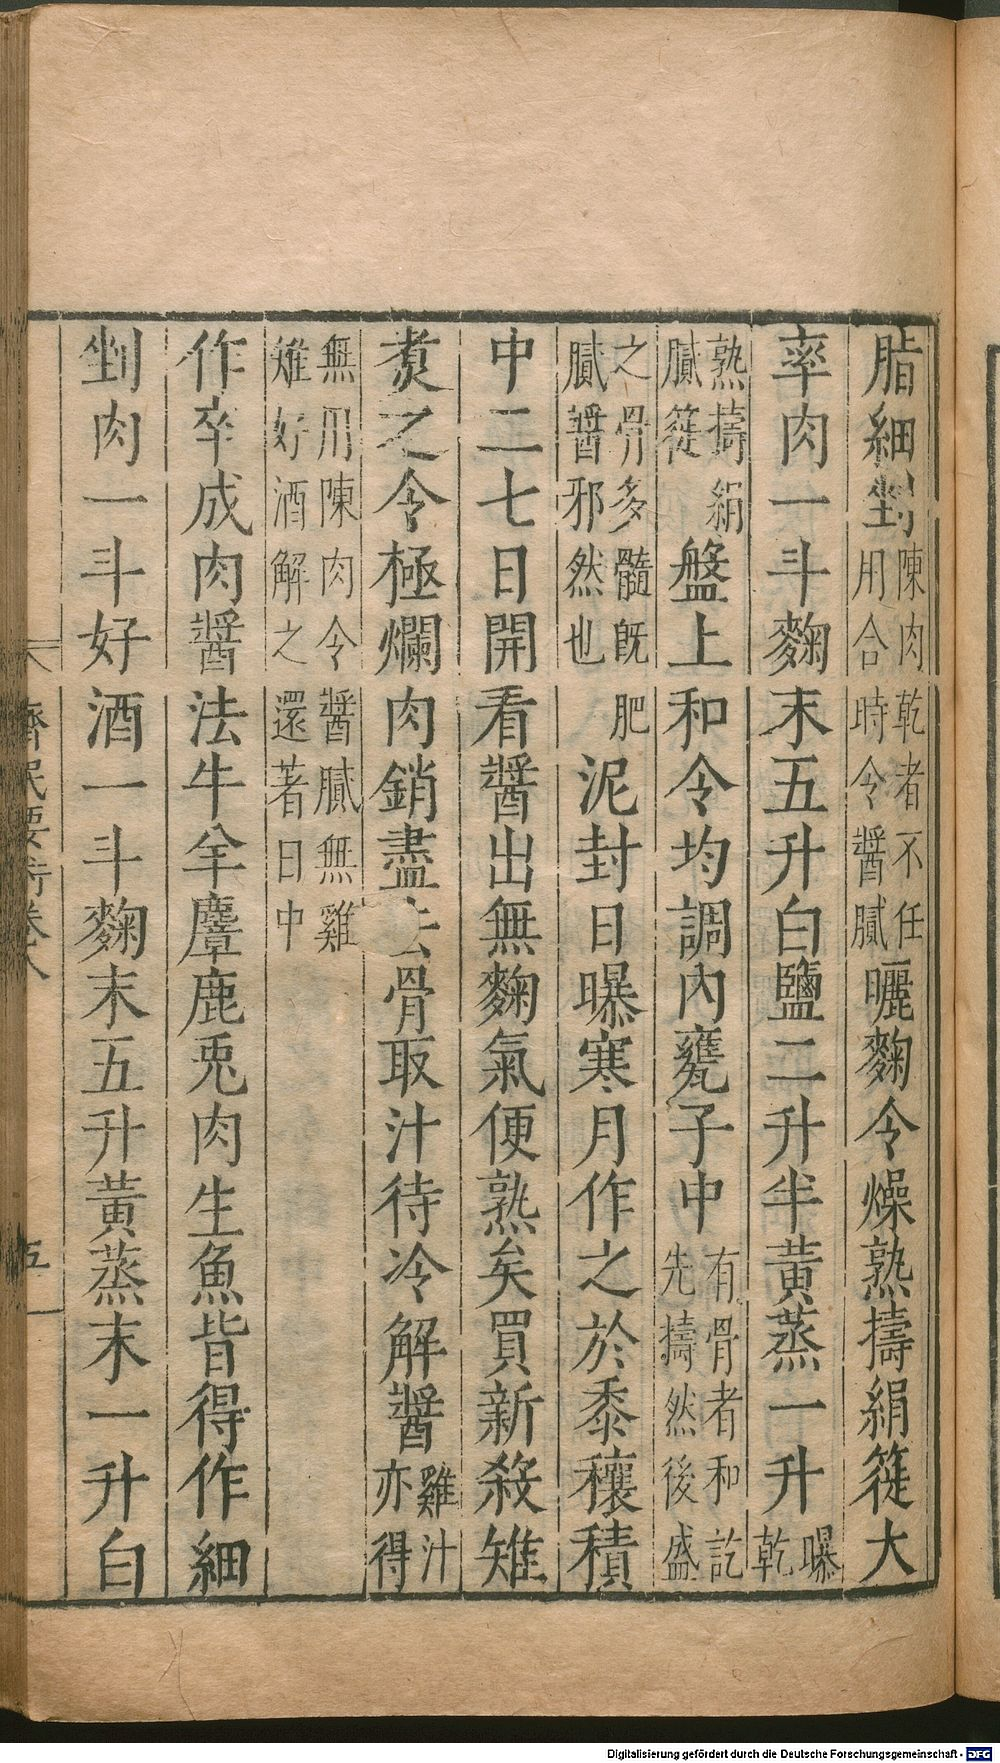 脂細剉陳肉乾者不任用合時令醬膩曬麴令燥熟擣絹簁大
率肉一斗麴末五升白鹽二升半黃蒸一升曝乾
熟擣絹膩簁盤上和令均調內甕子中有骨者和訖先擣然後盛
之骨多髓既肥膩醬邪然也泥封日曝寒月作之於黍穰積
中二七日開看醬出無麴氣便熟矣買新殺雉
煑之令極爛肉銷盡去骨取汁待冷解醬雞汁亦得
無用陳肉令醬膩無雞雉好酒解之還著日中
作卒成肉醬法牛羊麞鹿兎肉生魚皆得作細
剉肉一斗好酒一斗麴末五升黃蒸末一升白
齊民要術卷八 五
Digitalisierung gefördert durch die Deutsche Forschungsgemeinschaft - DFG